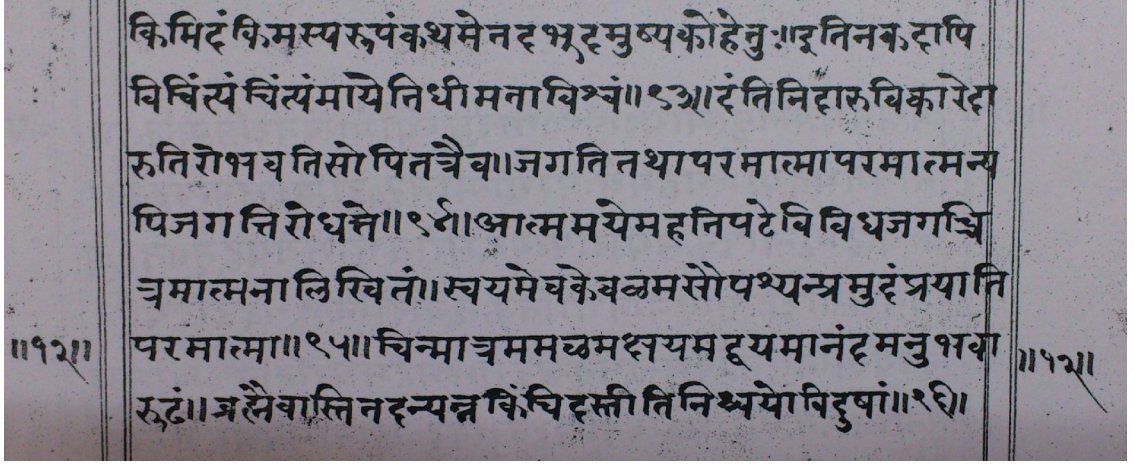 किमिदंकिमस्यरूपंकथमेनदभूदमुष्यकोहेतुः॥इतिनकदापि
विचिंत्यंचिंत्यंमायेतिधीमताविश्वं॥९३॥दंतिनिदारुविकारेदा
रुतिरोभवतिसोपितत्रैव॥जगतितथापरमात्मापरमात्मन्य
पिजगत्तिरोधत्ते॥९४॥आत्ममयेमहतिपटेविविधजगच्चि
त्रमात्मनालिखितं॥स्वयमेवकेवळमसौपश्यन्प्रमुदंप्रयाति
॥१२॥ परमात्मा॥९५॥चिन्मात्रममळमक्षयमद्वयमानंदमनुभवा ॥१२॥
रूढं॥ब्रह्मैवास्तिनदन्यन्नकिंचिदस्तीतिनिश्चयोविदुषां॥९६॥